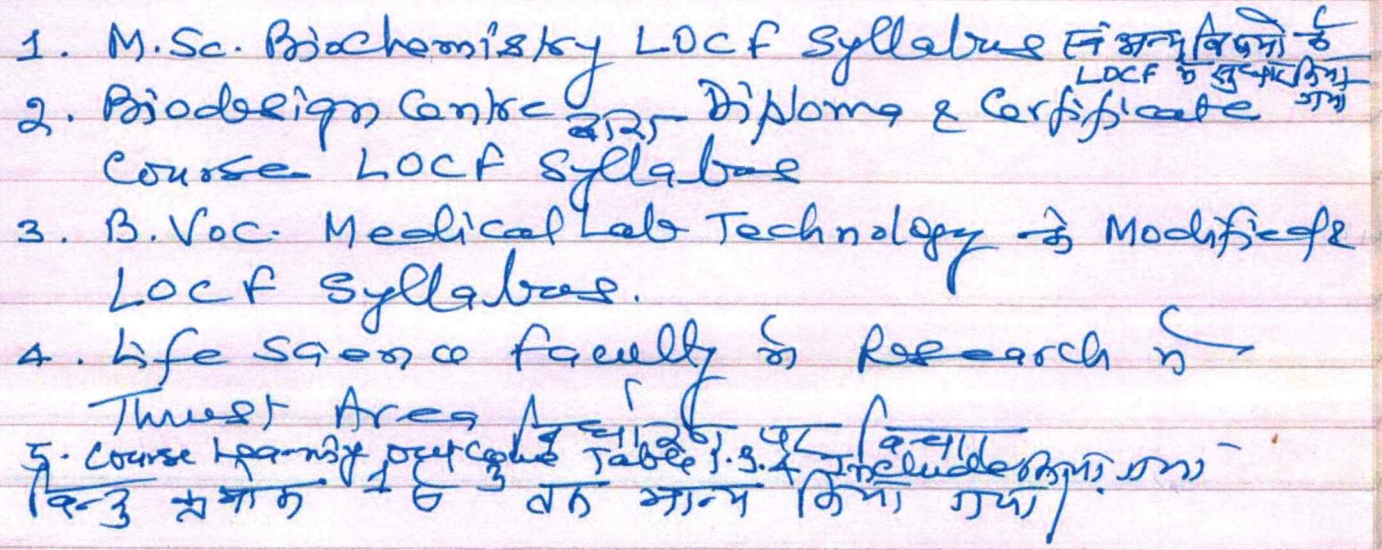 1. M.Sc. Biochemistry LOCF Syllabus एवं अन्य विषयों के
LOCF में सुधार किया गया
2. Biodesign Centre द्वारा Diploma & Certificate
Course LOCF Syllabus
3. B.Voc. Medical Lab Technology के Modified
LOCF Syllabus.
4. Life Science faculty के Research में
Thrust Area निर्धारण पर विचार
5. Course Learning Outcome Table Include किया गया
बिन्दु क्रमांक 1 से तक मान्य किया गया